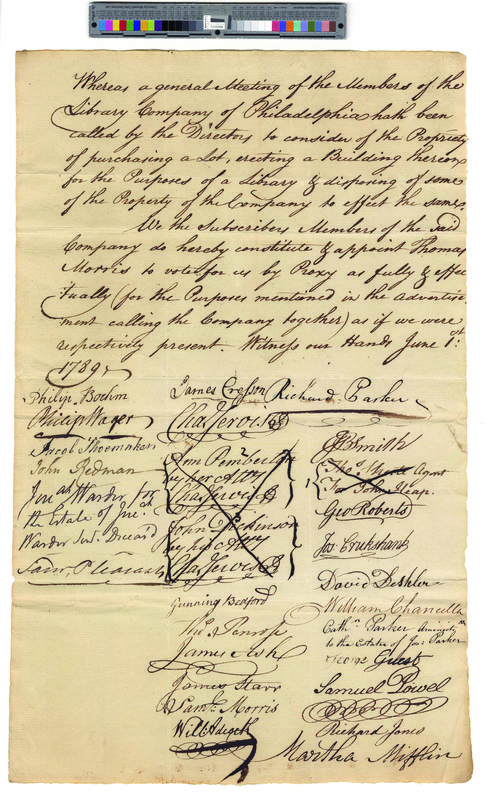 Whereas a general Meeting of the Members of the
Library Company of Philadelphia hath been
called by the Directors to consider of the Propriety
of purchasing a Lot, erecting a Building thereon
for the Purposes of a Library & disposing of some
of the Property of the Company to effect the same.
We the Subscribers Members of the said
Company do hereby constitute & appoint Thomas
Morris to vote for us by Proxy as fully & effec
tually (for the Purposes mentioned in the Advertise
ment calling the Company together) as if we were
respectively present. Witness our Hands June 1st:
1789.
Philip Boehm
Philip Wager
Jacob Shoemaker
John Redman
Jerah Warder for
the Estate of Jerah
Warder Senr. Deceasd
Saml. Pleasants
James Cresson
Chas Jervis
Ann Pemberton
by her Atty
Chas Jervis
John Dickinson
by his Atty
Chas Jervis
Gunning Bedford
Thos Penrose
James Ash
James Starr
Saml. Morris
Will: Adcock
Richard Parker
JB Smith
Thos. Agent
For John
Geo Roberts
Jas Crukshank
David Deshler
William Chancellor
Cathn. Parker
to the Estate of Jos: Parker
George Guest
Samuel Powel
Richard Jones
Martha Mifflin